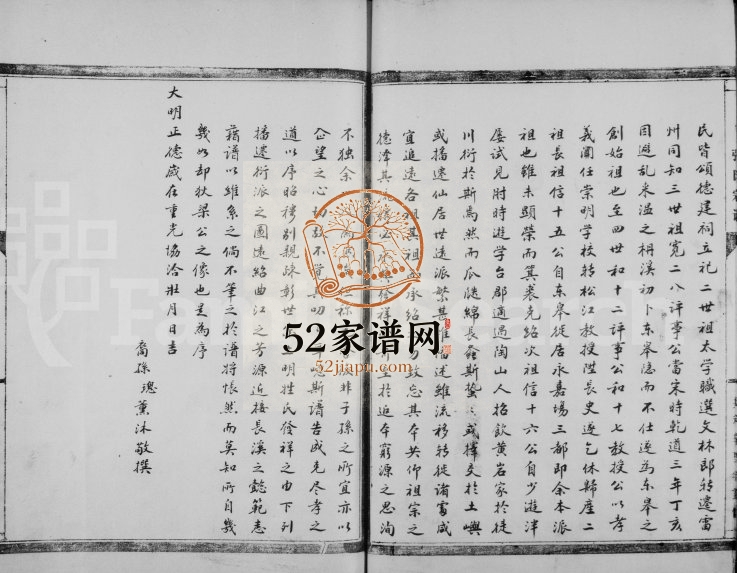 民皆頌德建祠立祀二世祖太学職選文林郎转遷雷
州同知三世祖寬二八评事公當宋時乾道三年丁亥
因避乱来温之枬溪初卜东皋隐而不仕遂为东皋之
創始祖也至四世和十二评事公和十七教授公以孝
義闻任崇明学校转松江教授陞長史遂乞休歸產二
祖長祖信十五公自东皋徙居永嘉場三都即余本派
祖也雖未顕荣而箕裘克紹次祖信十六公自少遊泮
屡试見肘時遊学台郡適遇陶山人招飲黄岩家於徒
川衍於斯焉然而瓜瓞綿長螽斯蟄 或擇爰於土與
或播遷仙居世遠派繁甚 述雖流移转徙诸富咸
宜追遠各 其祖 承绍 敢忘其本共仰祖宗之
德泽其 上於追本窮源之思洵
不独余 非子孫之所宜亦以
企望之心 斯谱告成克尽孝之
道以序昭穆别親疎彰世 明姓氏發祥之由下列
播遷衍派之圖遠紹曲江之芳源近接長溪之懿範悉
藉谱以維系之倘不筆之於谱将悵然而莫知所自幾
幾如却狄梁公之像也是為序
大明正德歲在重光協洽壯月日吉
裔孫 瑰 薰沐敬撰
52家谱网
52jiapu.com